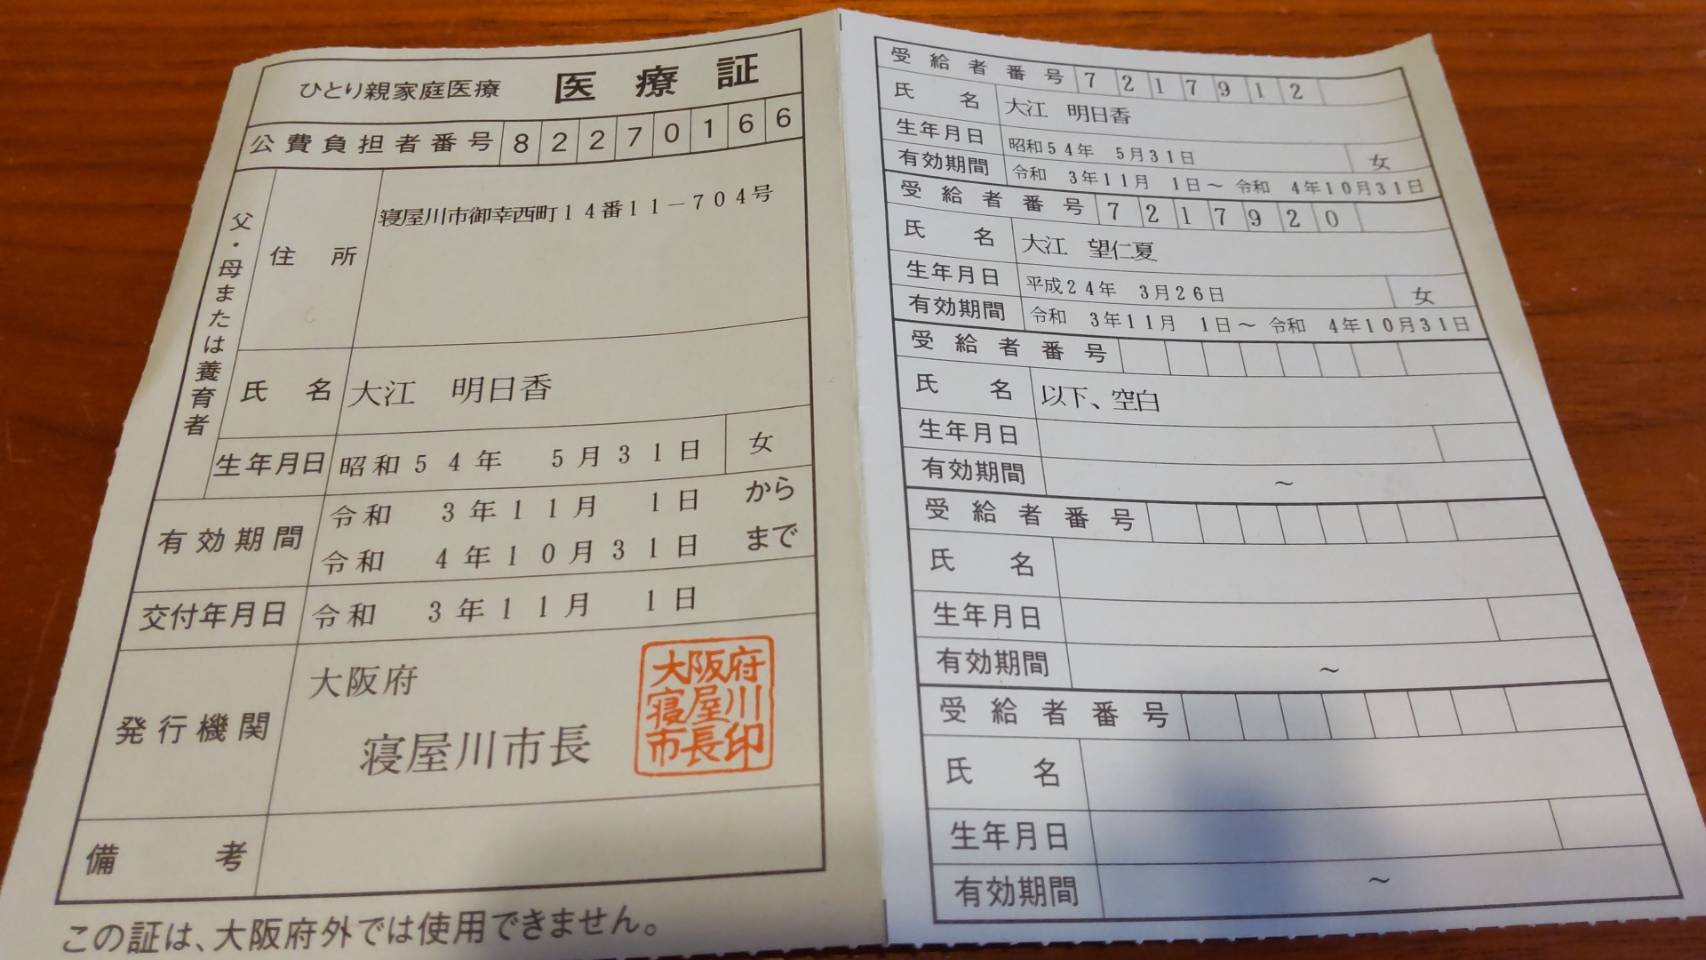 ひとり親家庭医療 医療証
公費負担者番号 82270166
父・母または養育者
住所 寝屋川市御幸西町14番11-704号
氏名 大江 明日香
生年月日 昭和54年 5月31日 女
有効期間 令和 3年11月 1日 から
令和 4年10月31日 まで
交付年月日 令和 3年11月 1日
発行機関 大阪府
寝屋川市長
大阪府
寝屋川
市長印
備考
この証は、大阪府外では使用できません。
受給者番号 7217912
氏名 大江 明日香
生年月日 昭和54年 5月31日 女
有効期間 令和 3年11月 1日~ 令和 4年10月31日
受給者番号 7217920
氏名 大江 望仁夏
生年月日 平成24年 3月26日 女
有効期間 令和 3年11月 1日~ 令和 4年10月31日
受給者番号
氏名 以下、空白
生年月日
有効期間 ~
受給者番号
氏名
生年月日
有効期間 ~
受給者番号
氏名
生年月日
有効期間 ~